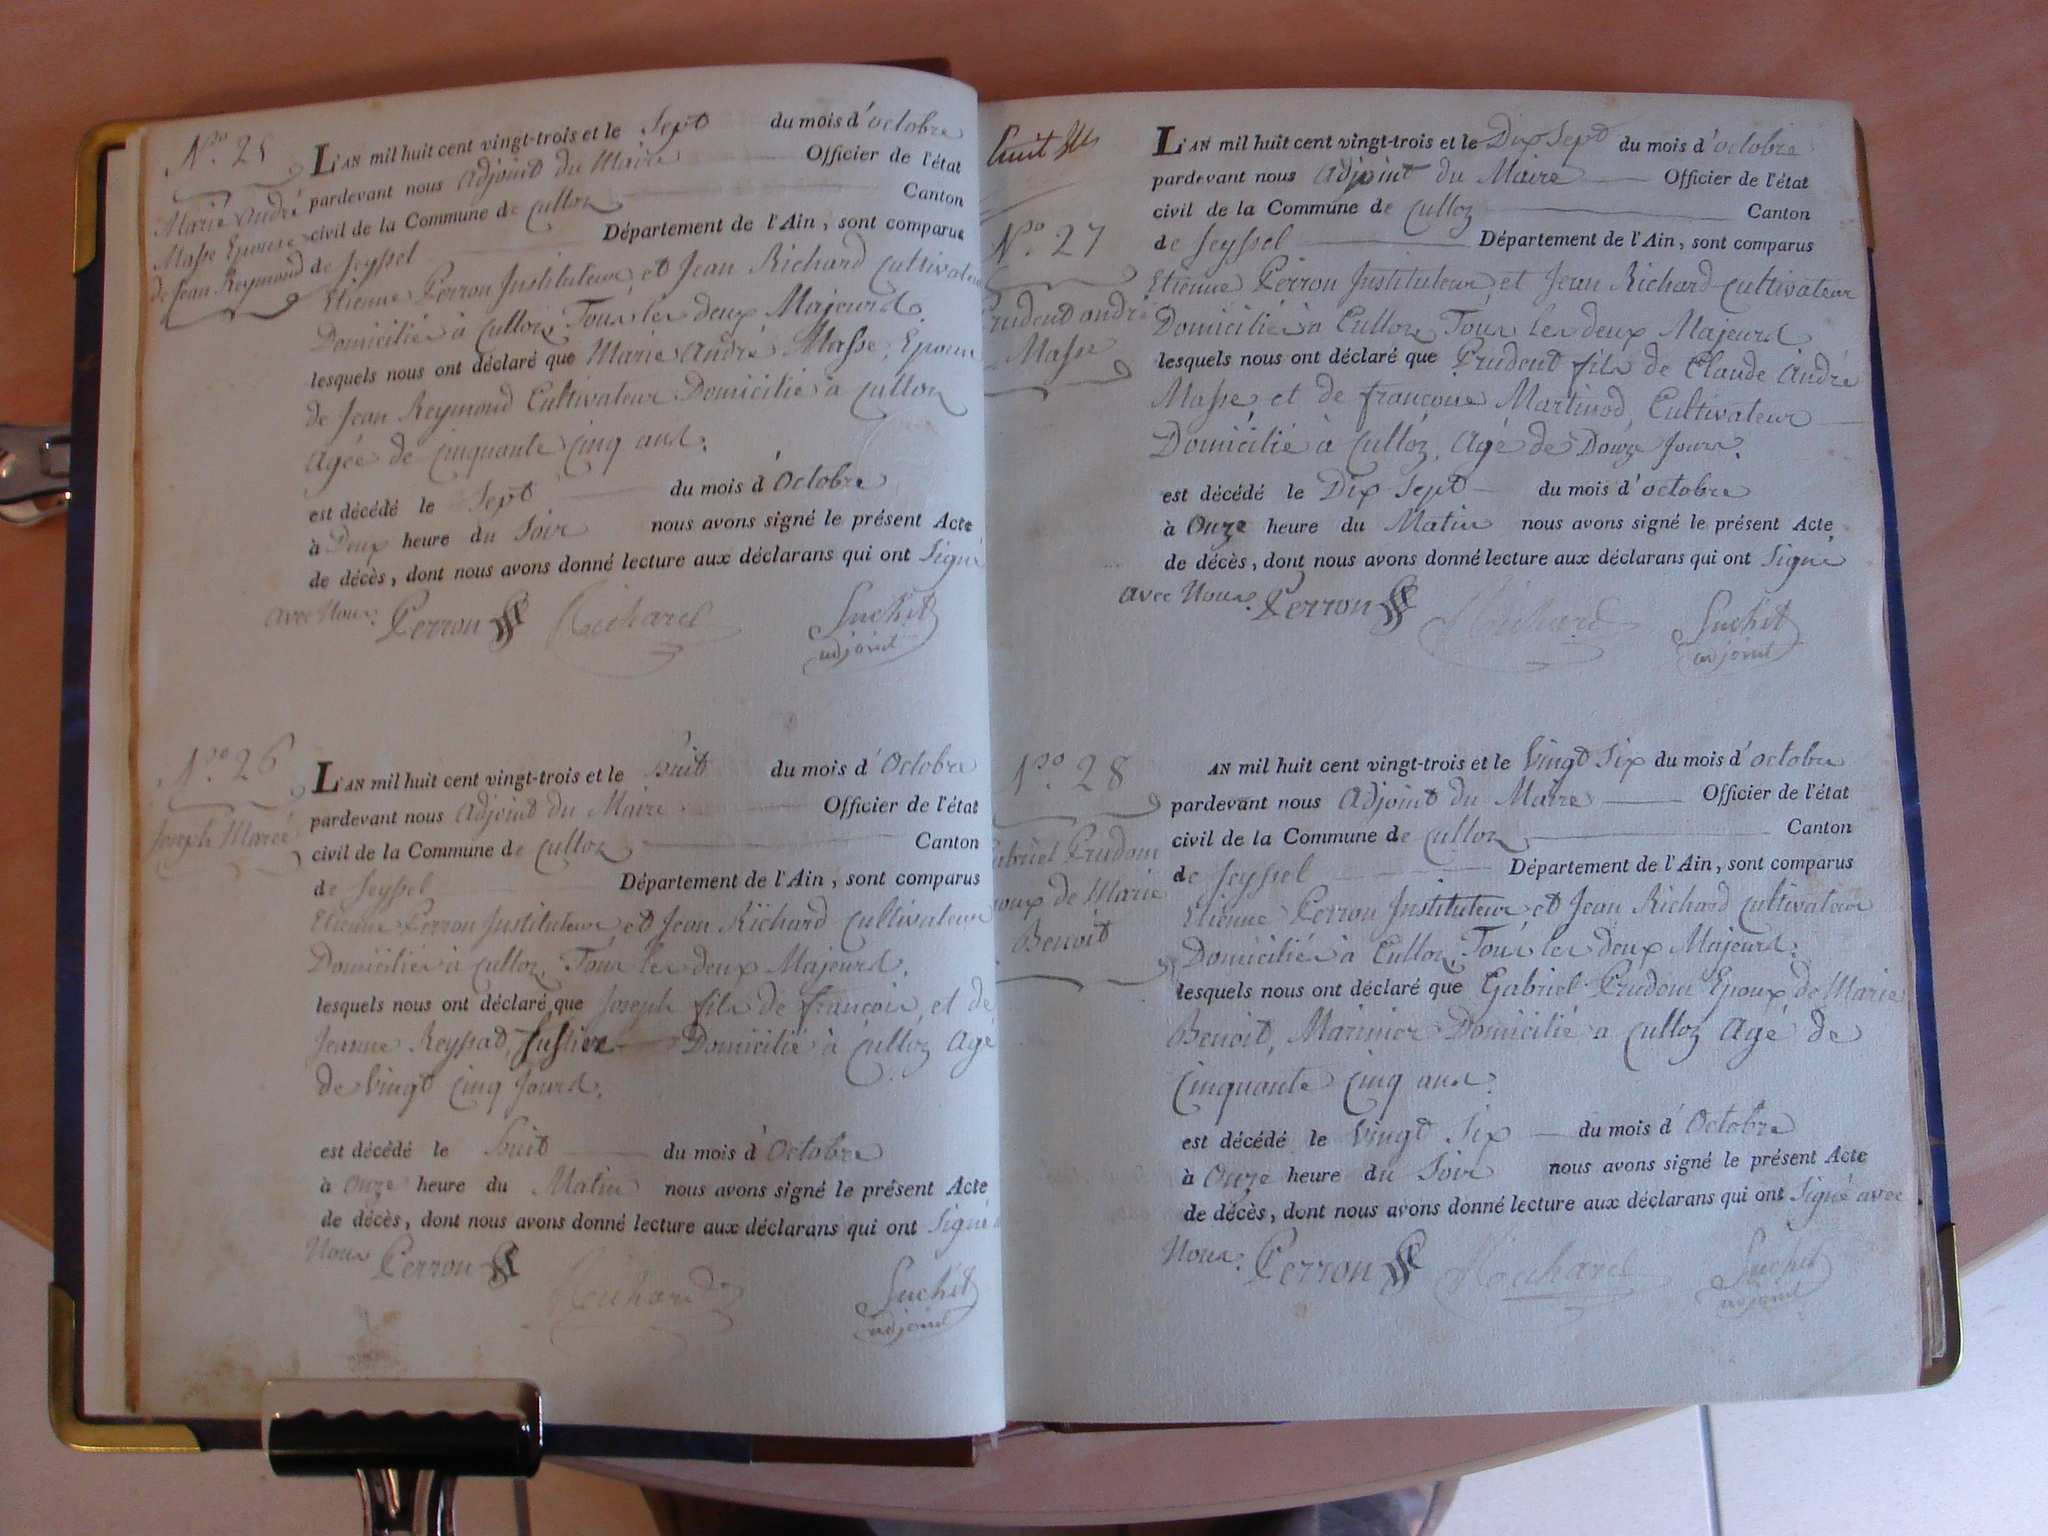 N.º 25
Marie André
Masse Epouse
de Jean Reymond
L'AN mil huit cent vingt-trois et le Sept du mois d'octobre
pardevant nous Adjoint du Maire Officier de l'état
civil de la Commune de Culloz Canton
de Seyssel Département de l'Ain, sont comparus
Etienne Perron Instituteur, et Jean Richard Cultivateur
Domiciliés à Culloz, Tous les deux Majeurs.
lesquels nous ont déclaré que Marie André Masse, Epouse
de Jean Reymond Cultivateur Domicilié à Culloz
Agée de Cinquante Cinq ans.
est décédé le Sept du mois d'Octobre
à Deux heure du Soir nous avons signé le présent Acte
de décès, dont nous avons donné lecture aux déclarans qui ont Signé
avec Nous. Perron Richard Suchet
adjoint
N.º 26
Joseph Marcé
L'AN mil huit cent vingt-trois et le huit du mois d'Octobre
pardevant nous Adjoint du Maire Officier de l'état
civil de la Commune de Culloz Canton
de Seyssel Département de l'Ain, sont comparus
Etienne Perron Instituteur et Jean Richard Cultivateur
Domiciliés à Culloz, Tous les deux Majeurs.
lesquels nous ont déclaré que Joseph fils de françois, et de
Jeanne Domicilié à Culloz Agé
de Vingt Cinq Jours.
est décédé le huit du mois d'Octobre
à Onze heure du Matin nous avons signé le présent Acte
de décès, dont nous avons donné lecture aux déclarans qui ont Signé
Nous Perron Richard Suchet
adjoint
N.º 27
Prudent andré
Masse
L'AN mil huit cent vingt-trois et le Dix Sept du mois d'octobre
pardevant nous Adjoint du Maire Officier de l'état
civil de la Commune de Culloz Canton
de Seyssel Département de l'Ain, sont comparus
Etienne Perron Instituteur, et Jean Richard Cultivateur
Domiciliés à Culloz, Tous les deux Majeurs
lesquels nous ont déclaré que Prudent fils de Claude André
Masse, et de françoise Martinod, Cultivateur
Domicilié à Culloz, Agé de Douze Jours.
est décédé le Dix Sept du mois d'octobre
à Onze heure du Matin nous avons signé le présent Acte
de décès, dont nous avons donné lecture aux déclarans qui ont Signé
avec Nous. Perron Richard Suchet
adjoint
N.º 28
Gabriel Prudom
Epoux de Marie
Benoit
AN mil huit cent vingt-trois et le Vingt Six du mois d'octobre
pardevant nous Adjoint du Maire Officier de l'état
civil de la Commune de Culloz Canton
de Seyssel Département de l'Ain, sont comparus
Etienne Perron Instituteur, et Jean Richard Cultivateur
Domiciliés à Culloz, Tous les deux Majeurs.
lesquels nous ont déclaré que Gabriel Prudom Epoux de Marie
Benoit, Marinier Domicilié a Culloz Agé de
Cinquante Cinq ans.
est décédé le Vingt Six du mois d'Octobre
à Onze heure du Soir nous avons signé le présent Acte
de décès, dont nous avons donné lecture aux déclarans qui ont Signé avec
Nous. Perron Richard Suchet
adjoint